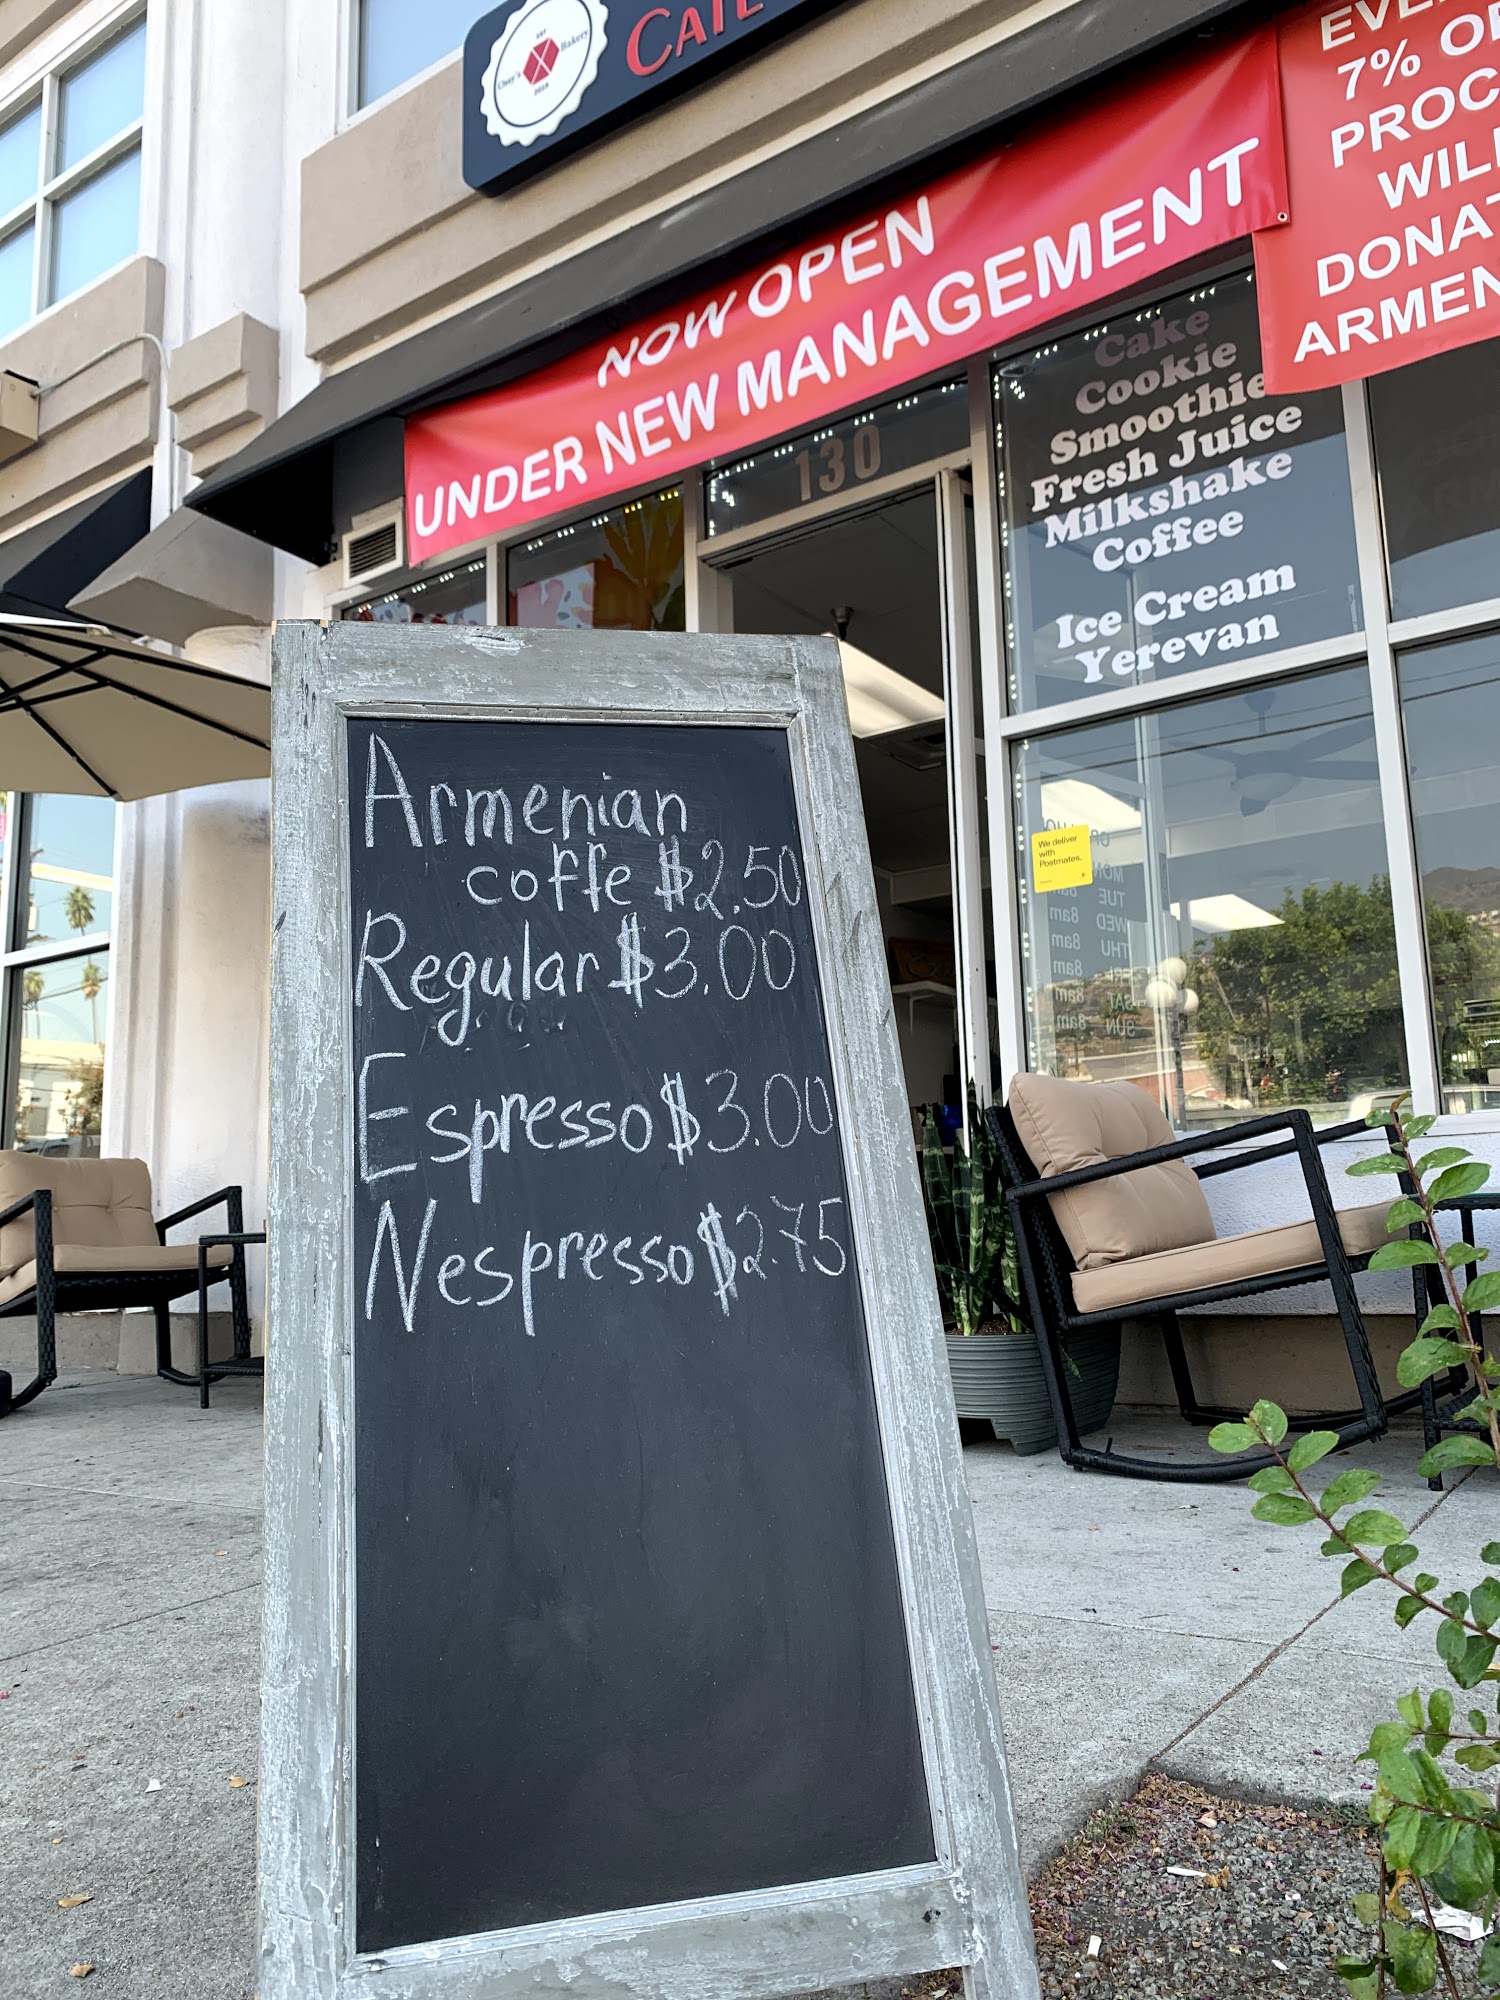 EST
Ossy's
Bakery
2019
CAFE
NOW OPEN
UNDER NEW MANAGEMENT
7%
WILL
130
Cake
Cookie
Smoothie
Fresh Juice
Milkshake
Coffee
Ice Cream
Yerevan
We deliver
with
Postmates.
MON
TUE
8am WED
8am THU
8am
8am SAT
8am SUN
Armenian
coffe $2.50
Regular $3.00
Espresso $3.00
Nespresso $2.75